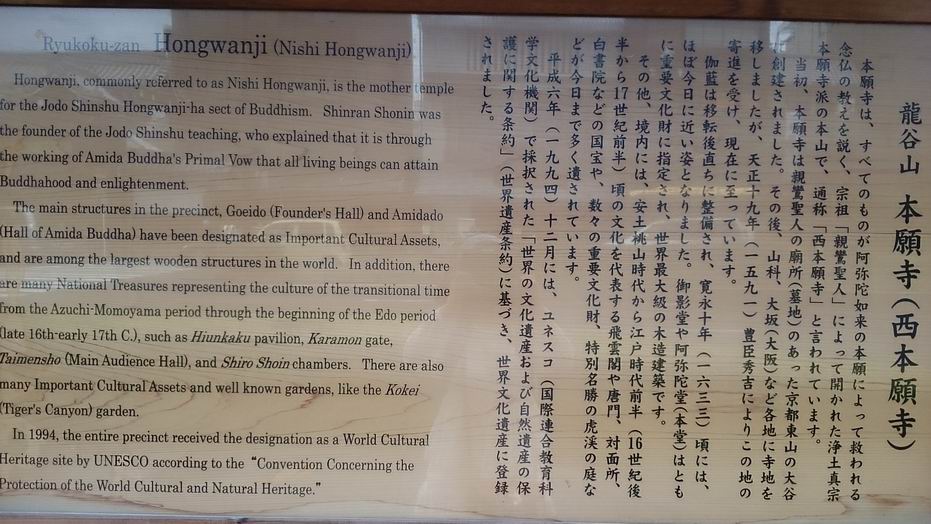 Ryukoku-zan Hongwanji (Nishi Hongwanji)
Hongwanji, commonly referred to as Nishi Hongwanji, is the mother temple
for the Jodo Shinshu Hongwanji-ha sect of Buddhism. Shinran Shonin was
the founder of the Jodo Shinshu teaching, who explained that it is through
the working of Amida Buddha's Primal Vow that all living beings can attain
Buddhahood and enlightenment.
The main structures in the precinct, Goeido (Founder's Hall) and Amidado
(Hall of Amida Buddha) have been designated as Important Cultural Assets,
and are among the largest wooden structures in the world. In addition, there
are many National Treasures representing the culture of the transitional time
from the Azuchi-Momoyama period through the beginning of the Edo period
(late 16th-early 17th C.), such as Hiunkaku pavilion, Karamon gate,
Taimensho (Main Audience Hall), and Shiro Shoin chambers. There are also
many Important Cultural Assets and well known gardens, like the Kokei
(Tiger's Canyon) garden.
In 1994, the entire precinct received the designation as a World Cultural
Heritage site by UNESCO according to the “Convention Concerning the
Protection of the World Cultural and Natural Heritage.”
龍谷山 本願寺（西本願寺）
本願寺は、すべてのものが阿弥陀如来の本願によって救われる
念仏の教えを説く、宗祖「親鸞聖人」によって開かれた浄土真宗
本願寺派の本山で、通称「西本願寺」と言われています。
当初、本願寺は親鸞聖人の廟所（墓地）のあった京都東山の大谷
に創建されました。その後、山科、大坂（大阪）など各地に寺地を
移しましたが、天正十九年（一五九一）豊臣秀吉によりこの地の
寄進を受け、現在に至っています。
伽藍は移転後直ちに整備され、寛永十年（一六三三）頃には、
ほぼ今日に近い姿となりました。御影堂や阿弥陀堂（本堂）はとも
に重要文化財に指定され、世界最大級の木造建築です。
その他、境内には、安土桃山時代から江戸時代前半（16世紀後
半から17世紀前半）頃の文化を代表する飛雲閣や唐門、対面所、
白書院などの国宝や、数々の重要文化財、特別名勝の虎渓の庭な
どが今日まで多く遺されています。
平成六年（一九九四）十二月には、ユネスコ（国際連合教育科
学文化機関）で採択された「世界の文化遺産および自然遺産の保
護に関する条約」（世界遺産条約）に基づき、世界文化遺産に登録
されました。